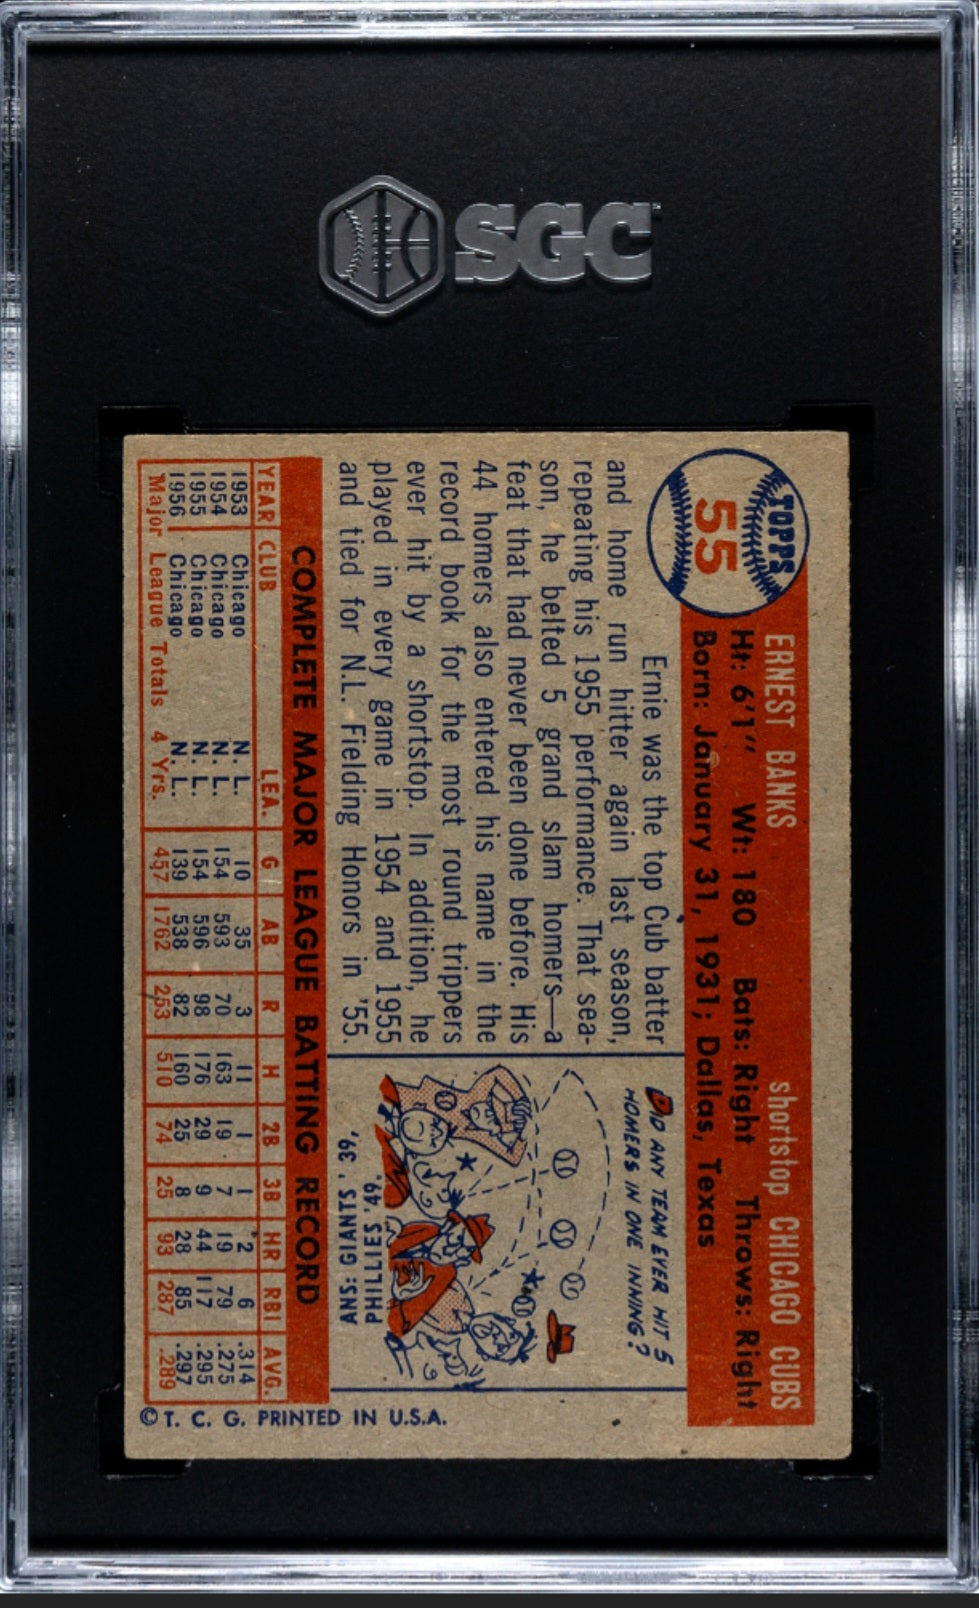 SGC
TOPPS
55
ERNEST BANKS shortstop CHICAGO CUBS
Ht: 6'1" Wt: 180 Bats: Right Throws: Right
Born: January 31, 1931; Dallas, Texas
Ernie was the top Cub batter
and home run hitter again last season,
repeating his 1955 performance. That sea-
son, he belted 5 grand slam homers—a
feat that had never been done before. His
44 homers also entered his name in the
record book for the most round trippers
ever hit by a shortstop. In addition, he
played in every game in 1954 and 1955
and tied for N.L. Fielding Honors in '55.
DID ANY TEAM EVER HIT 5
HOMERS IN ONE INNING?
ANS: GIANTS '39,
PHILLIES '49.
COMPLETE MAJOR LEAGUE BATTING RECORD
YEAR CLUB LEA. G AB R H 2B 3B HR RBI AVG.
1953 Chicago N. L. 10 35 3 11 1 1 2 6 .314
1954 Chicago N. L. 154 593 70 163 19 7 19 79 .275
1955 Chicago N. L. 154 596 98 176 29 9 44 117 .295
1956 Chicago N. L. 139 538 82 160 25 8 28 85 .297
Major League Totals 4 Yrs. 457 1762 253 510 74 25 93 287 .289
© T. C. G. PRINTED IN U.S.A.